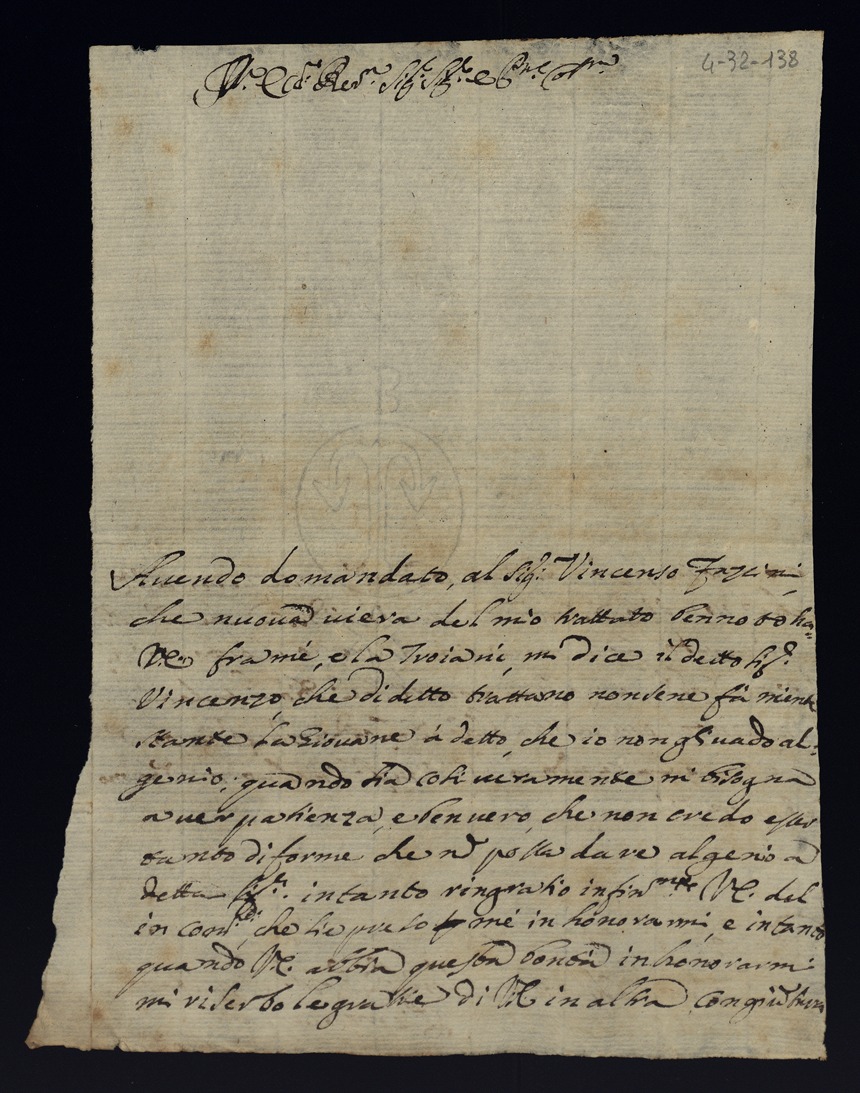 4-32-138
Avendo domandato, al Sig.r Vincenso
che nuova viera del mio trattato tenuto ha
VS. framé, e la Troiani, mi dice il detto Sig.r
Vincenzo, che di detto trattato nonsene fà niente
stante la Giovane à detto, che io non gli vado al
genio; quando sia così veramente mi bisogna
aver patienza, e ben vero, che non credo esser
tanto diforme che nō possa dare al genio a
detta intanto ringratio infin.mte VS. del
incom.do, che sie preso p mé in honorarmi, e intanto
quando VS. abbia questa bontà in honorarmi
mi riserbo le gratie di VS in altra congiutura